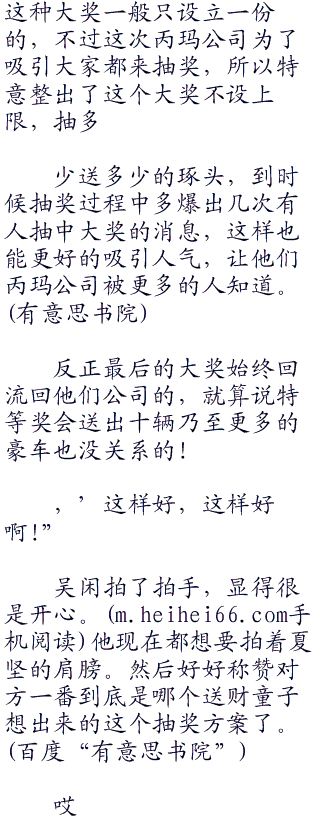 这种大奖一般只设立一份
的，不过这次丙玛公司为了
吸引大家都来抽奖，所以特
意整出了这个大奖不设上
限，抽多
少送多少的琢头，到时
候抽奖过程中多爆出几次有
人抽中大奖的消息，这样也
能更好的吸引人气，让他们
丙玛公司被更多的人知道。
(有意思书院)
反正最后的大奖始终回
流回他们公司的，就算说特
等奖会送出十辆乃至更多的
豪车也没关系的!
，’这样好，这样好
啊!”
吴闲拍了拍手，显得很
是开心。(m.heihei66.com手
机阅读)他现在都想要拍着夏
坚的肩膀。然后好好称赞对
方一番到底是哪个送财童子
想出来的这个抽奖方案了。
(百度“有意思书院”)
哎